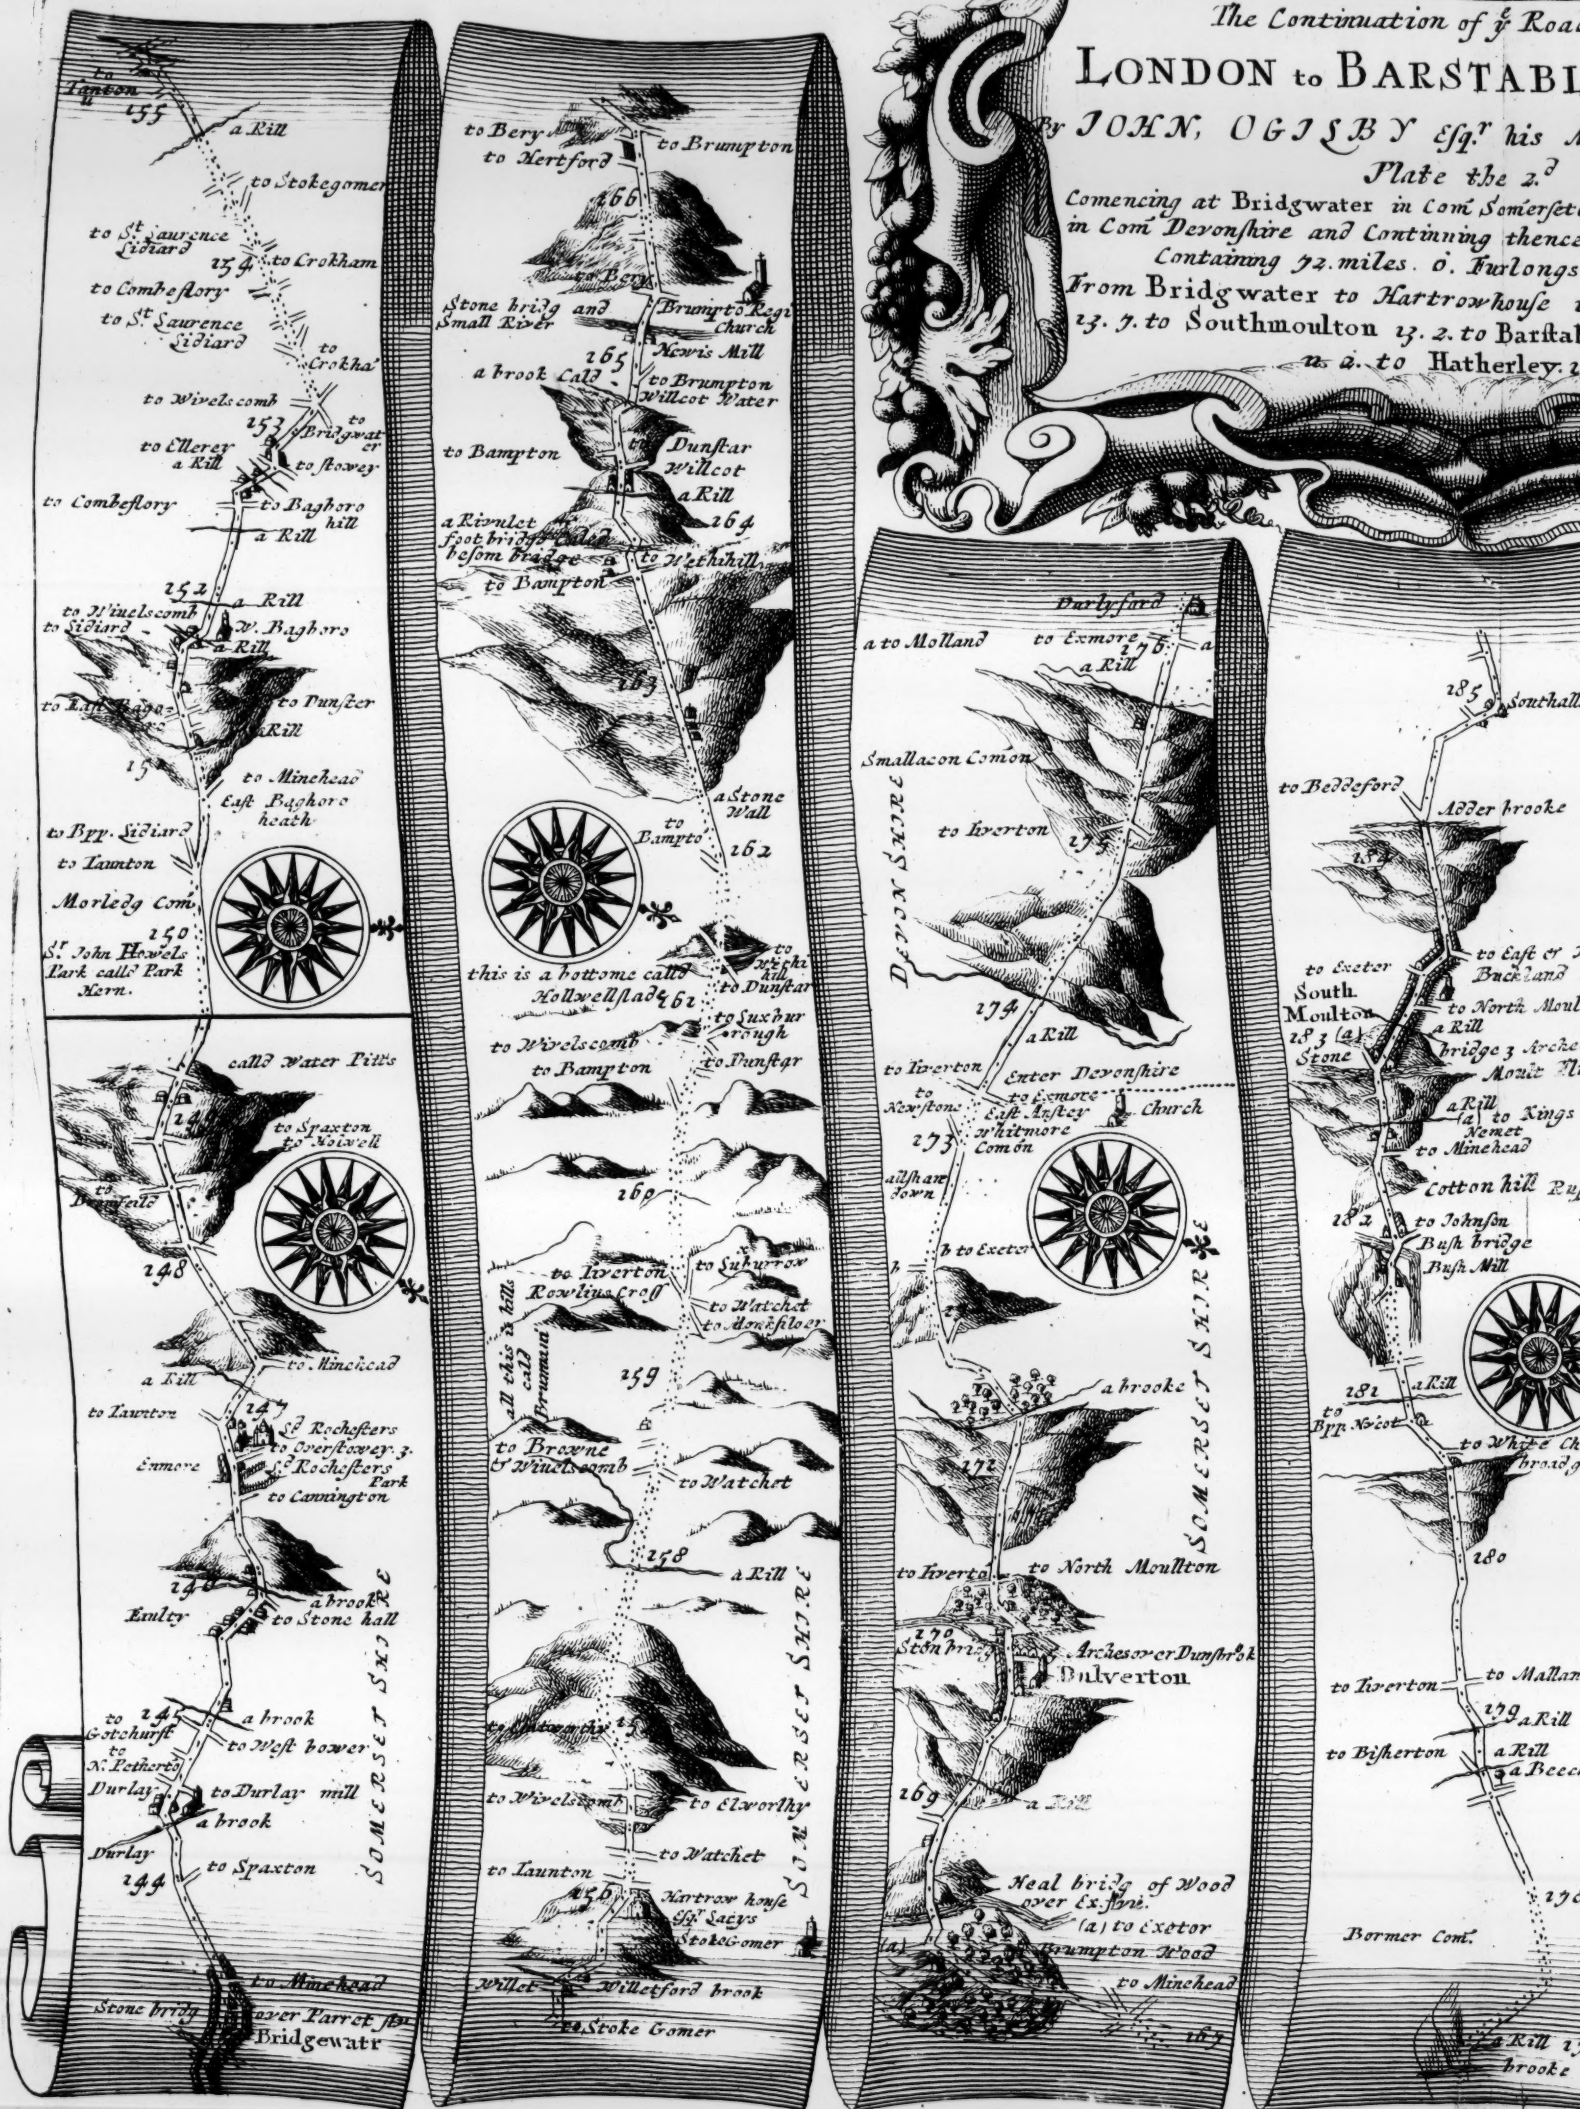 The Continuation of ye Roa
LONDON to BARSTABL
By IOHN, OGILBY Esqr. his
Plate the 2.d
Comencing at Bridgwater in Com Somerset
in Com Devonshire and Continuing thence
Containing 72. miles. 0. Furlongs
From Bridgwater to Hartrowhouse
13. 7. to Southmoulton 13. 2. to Barstal
to Hatherley.
to
Tanton
155
a Rill
to Stokegomer
to St Laurence
Lidiard
154
to Crokham
to Combeflory
to St. Laurence
Lidiard
to
Crokha
to Wivelscomb
153
to
Bridgwat
er
to Ellerey
a Rill
to stowey
to Combeflory
to Bagboro
hill
a Rill
152
a Rill
to Wiuelscomb
to Lidiard
W. Bagboro
a Rill
to Dunster
a Rill
15
to Minehead
East Bagboro
heath
to Bpp. Lidiard
to Taunton
Morledg Com
150
Sr. John Howels
Park calld Park
Hern.
calld Water Pitts
149
to Spaxton
to Holwell
to
Bromfeild
148
to Minehead
a Rill
147
to Taunton
Ld Rochesters
to Overstowey. 3.
Enmore
Ld Rochesters
Park
to Cannington
146
a brook
Faulty
to Stone hall
SOMERSET SHIRE
to
Gotehurst
145
a brook
to West bower
to
N. Petherto
Durlay
to Durlay mill
a brook
Durlay
to Spaxton
144
to Minehead
Stone bridg
over Parret flu
Bridgewatr
to Bery
to Hertford
to Brumpton
166
to Bery
Stone bridg and
Small River
Brumpto Regi
Church
Hewis Mill
165
a brook Cald
to Brumpton
Willcot Water
to Bampton
to
Dunstar
Willcot
a Rill
164
a Rivulet
foot bridg Caled
besom bridge
to Wethihill
to Bampton
163
a Stone
Wall
to
Bampto
162
this is a bottome calld
Hollwellslade
161
to
Wethi
hill
to Dunstar
to Luxbur
rough
to Wivelscomb
to Bampton
to Dunstar
160
to Tiverton
Rowlius Cross
to Luburrow
to Watchet
to Monksilver
all this is hills
cald
159
to Browne
& Wiuelscomb
to Watchet
158
a Rill
SOMERSET SHIRE
15
to Wivelscomb
to Elworthy
to Watchet
to Taunton
156
Hartrow house
Esqr Lacys
StokeGomer
Willet
Willetford brook
to Stoke Gomer
Durlyford
a to Molland
to Exmore
a
176
a Rill
Smallacon Comon
DEVON SHIRE
to Tiverton
175
174
a Rill
to Tiverton
Enter Devonshire
to
Newstone
to Exmore
East Anstey
Church
173
Whitmore
Comon
ailshan
down
b to Exeter
b
SOMERSET SHIRE
a brooke
171
to Tiverto
to North Moullton
170
Ston bridg
Arches over Dunsbrok
Dulverton
169
a Rill
Heal bridg of Wood
over Ex. fluvi.
(a) to Exetor
(a)
Brumpton Wood
to Minehead
167
185
Southall
to Beddeford
Adder brooke
184
to Exeter
to East &
Buckland
South
Moulton
to North Moul
183 (a)
a Rill
Stone
bridge 3 Arche
Moult
a Rill
(a) to Kings
Nemet
to Minehead
Cotton hill
182
to Johnson
Bush bridge
Bush Mill
181
a Rill
to
Bpp. Nicot
to White Ch
broad g
180
to Tiverton
to Mallan
179
a Rill
to Bisherton
a Rill
a Beec
Bormer Com.
a Rill
brooke